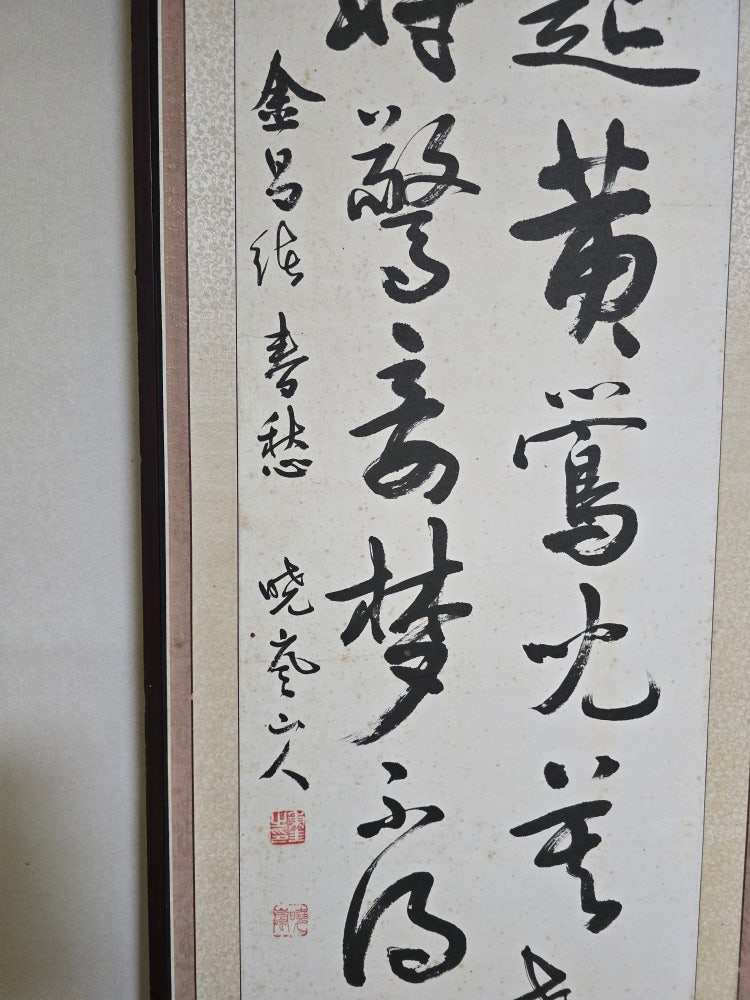 起黄鶯兒莫
時驚妾夢不得
金昌緒 春愁 曉嵐山人